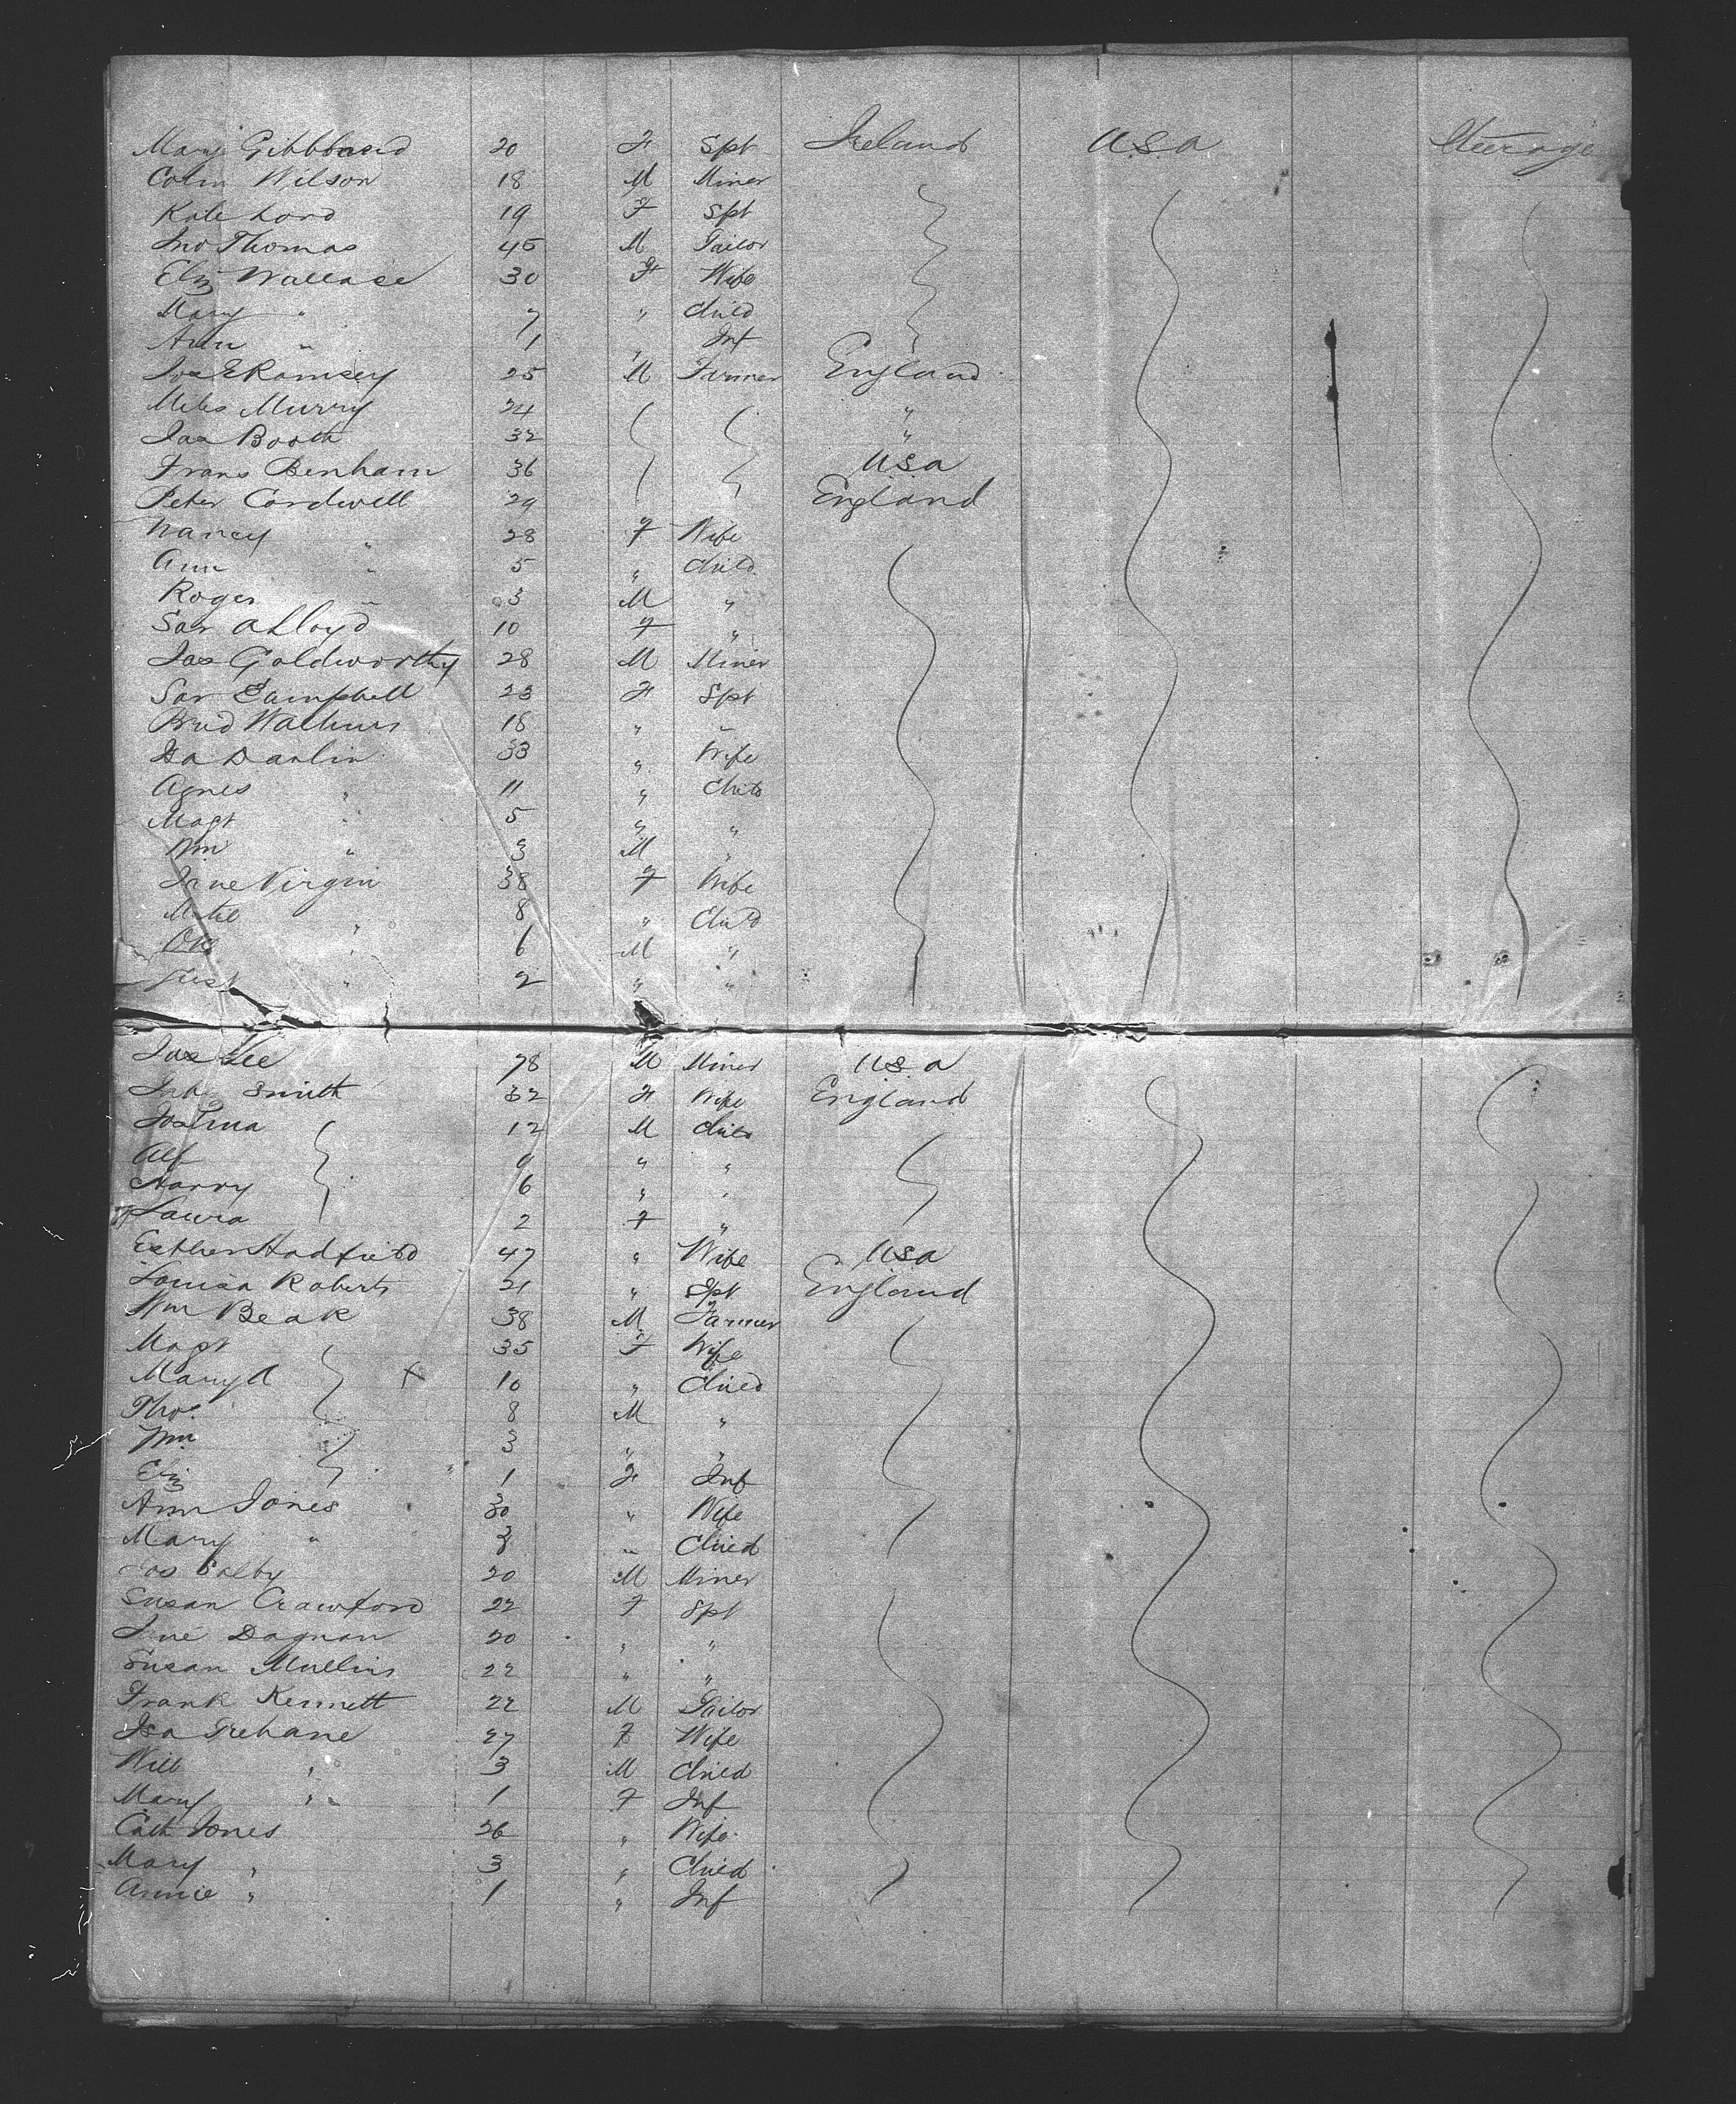 Mary Gibbbard 20 F Spt Ireland U.S.A Steerage
Colin Wilson 18 M Miner
Kate Lord 19 F Spt
Jno Thomas 45 M Tailor
Eliz Wallace 30 F Wife
Mary " 7 " Child
Ann " 1 " Inf
Jos E Ramsey 25 M Farmer England
Miles Murry 24 "
Jas Booth 32 "
Frans Benham 36 USA
Peter Cordwell 29 England
Nancy " 28 F Wife
Ann " 5 " Child
Roger " 3 M "
Sar A Lloyd 10 F "
Jas Goldworthy 28 M Miner
Sar Campbell 23 F Spt
Brid 18 " "
Isa Danlin 33 " Wife
Agnes " 11 " Child
Magt " 5 " "
Wm " 3 M "
Jane Virgin 38 F Wife
" 8 " Child
" 6 M "
" 2 " "
Jas Lee M Miner USA
Smith 32 F Wife England
Joshua 12 M Child
Alf 9 " "
Harry 6 " "
Laura 2 F "
Esther Hadfield 47 " Wife USA
Louisa Roberts 21 " Spt England
Wm Beak 38 M Farmer
Magt 35 F Wife
Mary A X 10 " Child
Thos 8 M "
Wm 3 " "
Eliz " 1 F Inf
Ann Jones 30 " Wife
Mary " 3 " Child
Jos Colby 20 M Miner
Susan Crawford 22 F Spt
Jane Dagnan 20 " "
Susan Mullins 22 " "
Frank Kennett 22 M Tailor
Isa Trehane 27 F Wife
Will " 3 M Child
Mary " 1 F Inf
Cath Jones 26 " Wife
Mary " 3 " Child
Annie " 1 " Inf